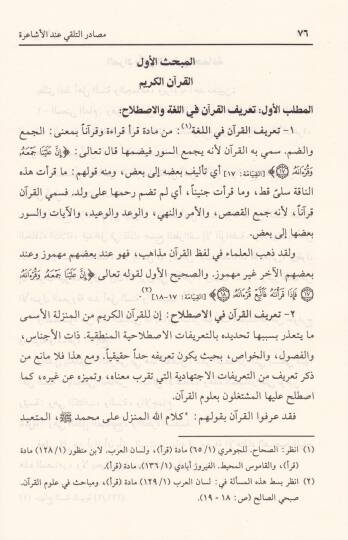 ٧٦
مصادر التلقي عند الأشاعرة
المبحث الأول
القرآن الكريم
المطلب الأول: تعريف القرآن في اللغة والاصطلاح:
١- تعريف القرآن في اللغة(١): من مادة قرأ قراءة وقرآناً بمعنى: الجمع
والضم. سمي به القرآن لأنه يجمع السور فيضمها قال تعالى: ﴿إِنَّ عَلَيْنَا جَمْعَهُ
وَقُرْآنَهُ ﴿١٧﴾﴾ [القيامة: ١٧] أي تأليف بعضه إلى بعض، ومنه قولهم: ما قرأت هذه
الناقة سلىً قط، وما قرأت جنيناً، أي لم تضم رحمها على ولد. فسمي القرآن
قرآناً، لأنه جمع القصص، والأمر والنهي، والوعد والوعيد، والآيات والسور
بعضها إلى بعض.
ولقد ذهب العلماء في لفظ القرآن مذاهب، فهو عند بعضهم مهموز وعند
بعضهم الآخر غير مهموز. والصحيح الأول لقوله تعالى ﴿إِنَّ عَلَيْنَا جَمْعَهُ وَقُرْآنَهُ
﴿١٧﴾ فَإِذَا قَرَأْنَاهُ فَاتَّبِعْ قُرْآنَهُ ﴿١٨﴾﴾ [القيامة: ١٧-١٨](٢).
٢- تعريف القرآن في الاصطلاح: إن للقرآن الكريم من المنزلة الأسمى
ما يتعذر بسببها تحديده بالتعريفات الاصطلاحية المنطقية. ذات الأجناس،
والفصول، والخواص، بحيث يكون تعريفه حداً حقيقياً. ومع هذا فلا مانع من
ذكر تعريف من التعريفات الإجتهادية التي تقرب معناه، وتميزه عن غيره، كما
اصطلح عليها المشتغلون بعلوم القرآن.
فقد عرفوا القرآن بقولهم: "كلام الله المنزل على محمد ﷺ، المتعبد
(١) انظر: الصحاح. للجوهري (١/ ٦٥) مادة (قرأ)، ولسان العرب. لابن منظور (١/ ١٢٨) مادة
(قرأ)، والقاموس المحيط. الفيروز أبادي (١/ ١٣٦). مادة (قرأ).
(٢) انظر بسط هذه المسألة في: لسان العرب (١/ ١٢٩) مادة (قرأ)، ومباحث في علوم القرآن.
صبحي الصالح (ص: ١٨ - ١٩).